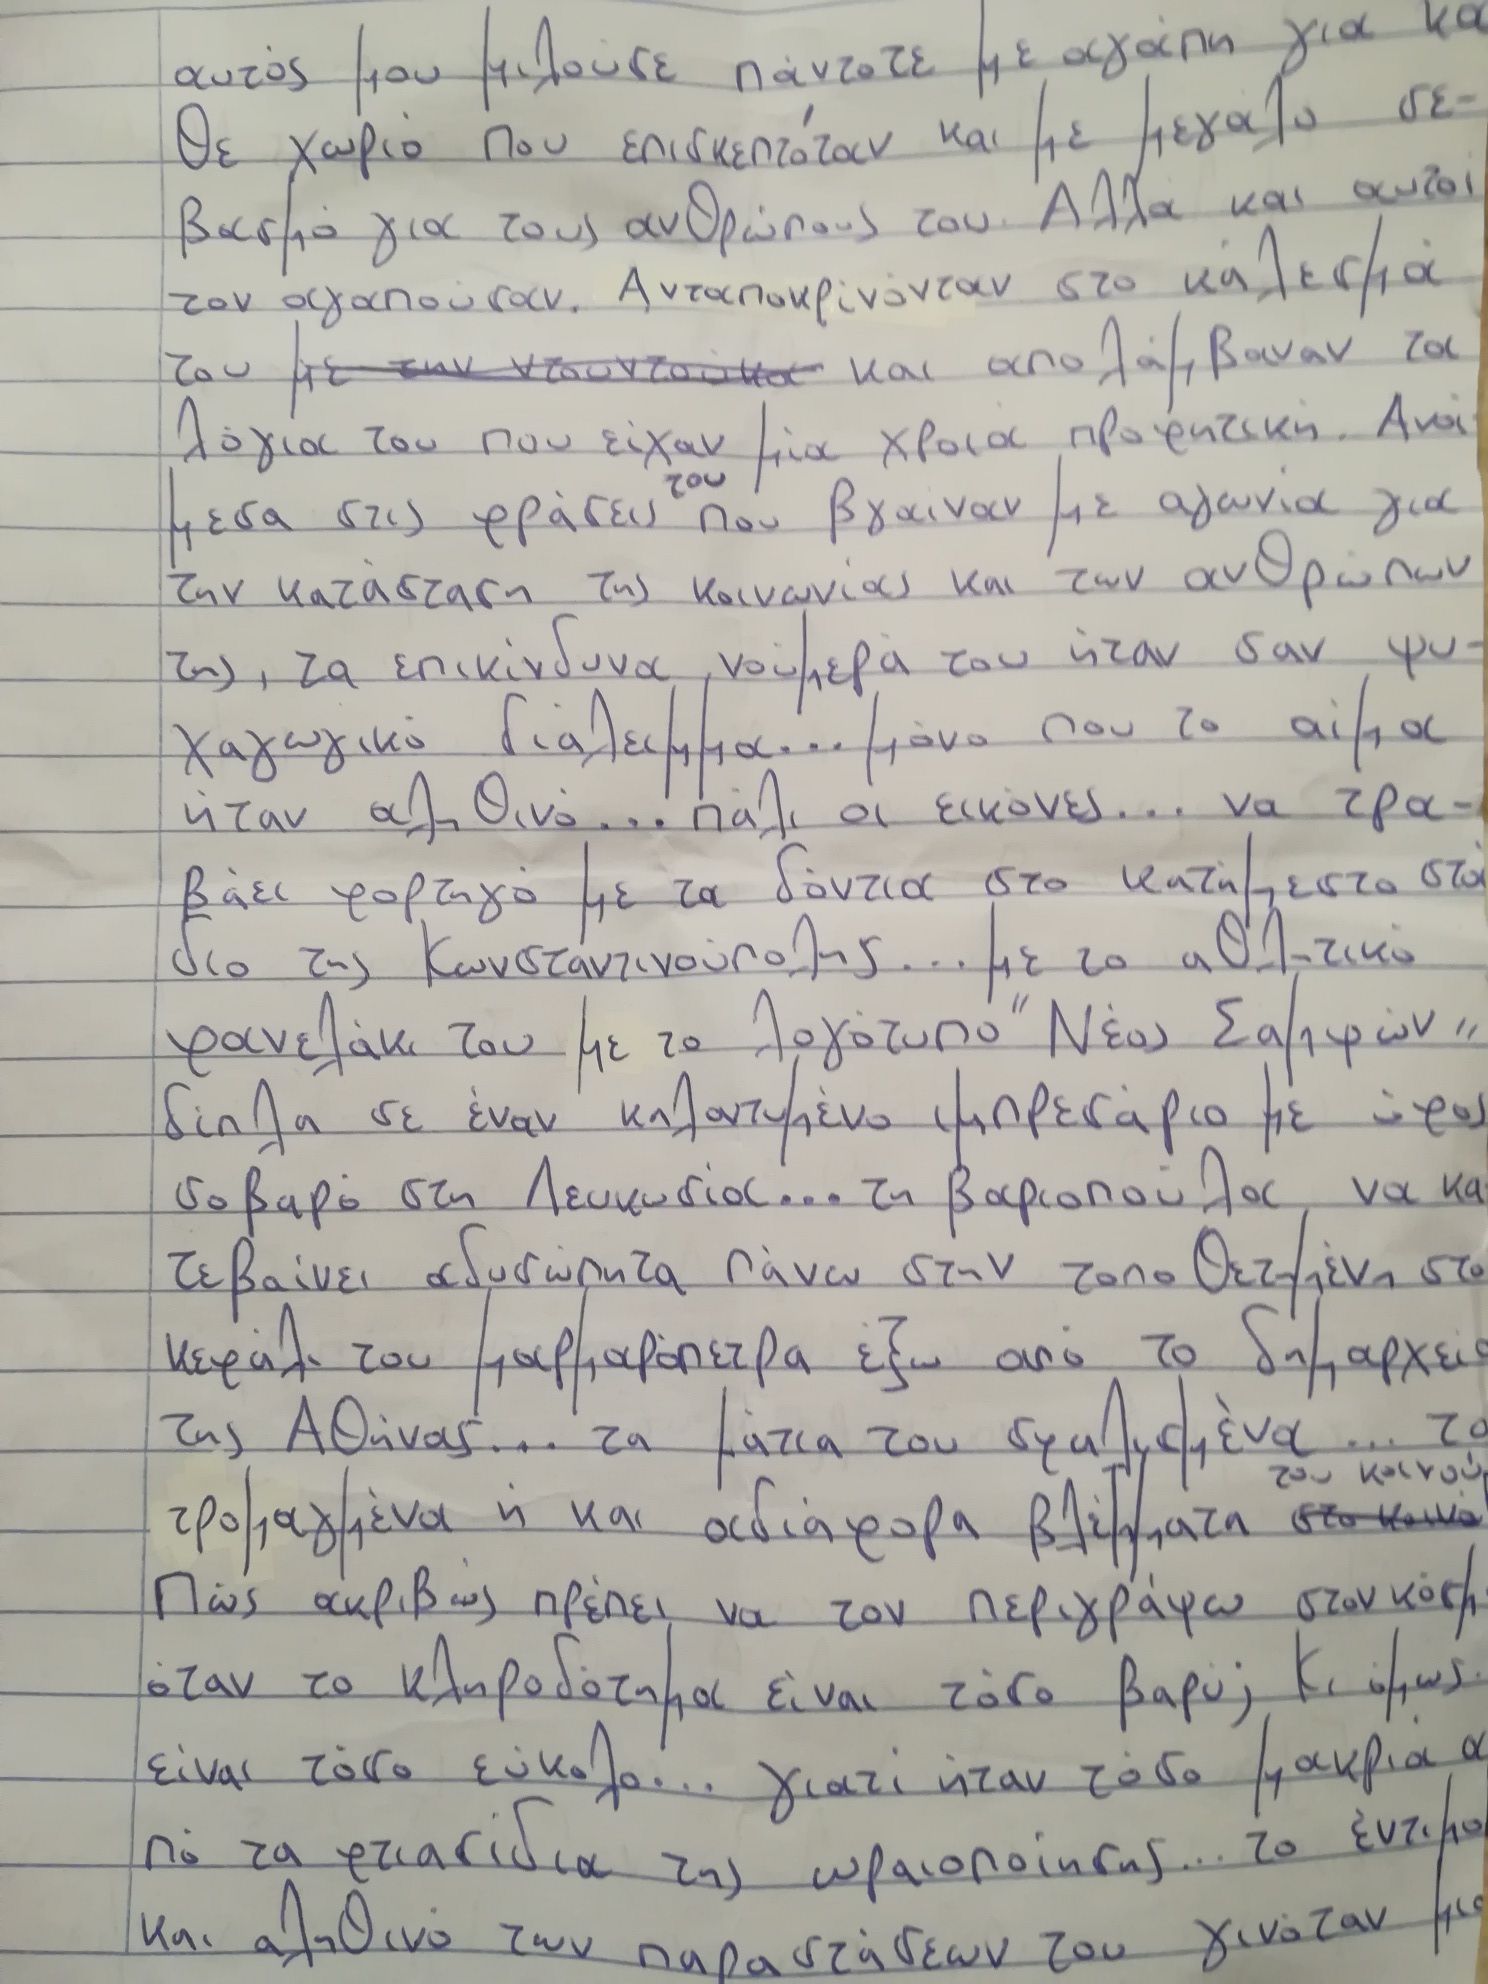 αυτός μου μιλούσε πάντοτε με αγάπη για κα
θε χωριό που επισκεπτόταν και με μεγάλο σε-
βασμό για τους ανθρώπους του. Αλλά και αυτοί
τον αγαπούσαν. Ανταποκρίνόνταν στο κάλεσμά
του με την ντουντούκα και απολάμβαναν τα
λόγια του που είχαν μία χροιά προφητική. Ανά
του
μεσα στις φράσεις που βγαίναν με αγωνία για
την κατάσταση της κοινωνίας και των ανθρώπων
της, τα επικίνδυνα νούμερά του ήταν σαν ψυ-
χαγωγικό διάλειμμα... μόνο που το αίμα
ήταν αληθινό... πάλι οι εικόνες... να τρα-
βάει φορτηγό με τα δόντια στο κατάμεστο στά
διο της Κωνσταντινούπολης... με το αθλητικό
φανελάκι του με το λογότυπο "Νέος Σαμψών"
δίπλα σε έναν κηλαντημένο ιμπρεσάριο με ύφος
σοβαρό στη Λευκωσία... τη βαριοπούλα να κα
τεβαίνει αδυσώπητα πάνω στην τοποθετημένη στο
κεφάλι του μαρμαρόπετρα έξω από το δημαρχείο
της Αθήνας... τα μάτια του σφαλισμένα... τα
του κοινού
τρομαγμένα ή και αδιάφορα βλέμματα στο κοινό
Πώς ακριβώς πρέπει να τον περιγράψω στον κόσμ
όταν το κληροδότημα είναι τόσο βαρύ; Κι όμως
είναι τόσο εύκολο... γιατί ήταν τόσο μακριά α
πό τα φτιασίδια της ωραιοποίησης... το έντιμο
και αληθινό των παραστάσεων του γινόταν μια